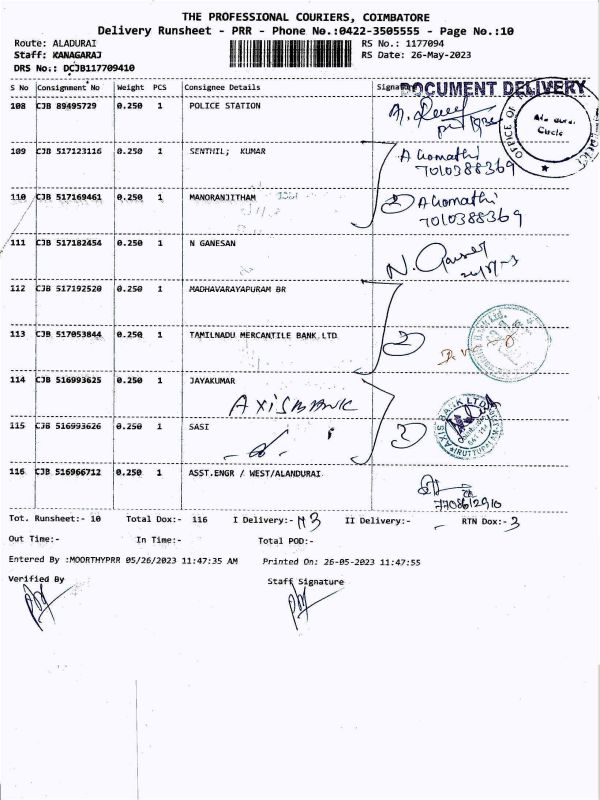 THE PROFESSIONAL COURIERS, COIMBATORE
Delivery Runsheet - PRR - Phone No.:0422-3505555 - Page No.:10
Route: ALADURAI RS No.: 1177094
Staff: KANAGARAJ RS Date: 26-May-2023
DRS No.: DCJB117709410
DOCUMENT DELIVERY
S No Consignment No Weight PCS Consignee Details Signature
108 CJB 89495729 0.250 1 POLICE STATION
OFFICE OF
Circle
109 CJB 517123116 0.250 1 SENTHIL; KUMAR A Gomathi
7010388369
110 CJB 517169461 0.250 1 MANORANJITHAM 2 A Gomathi
7010388369
111 CJB 517182454 0.250 1 N GANESAN N. Ganesh
112 CJB 517192520 0.250 1 MADHAVARAYAPURAM BR
113 CJB 517053844 0.250 1 TAMILNADU MERCANTILE BANK LTD 2
114 CJB 516993625 0.250 1 JAYAKUMAR
AXIS BANK
AXIS BANK LTD
115 CJB 516993626 0.250 1 SASI 2
116 CJB 516966712 0.250 1 ASST.ENGR / WEST/ALANDURAI
7708612910
Tot. Runsheet:- 10 Total Dox:- 116 I Delivery:- 113 II Delivery:- RTN Dox:- 3
Out Time:- In Time:- Total POD:-
Entered By :MOORTHYPRR 05/26/2023 11:47:35 AM Printed On: 26-05-2023 11:47:55
Verified By Staff Signature